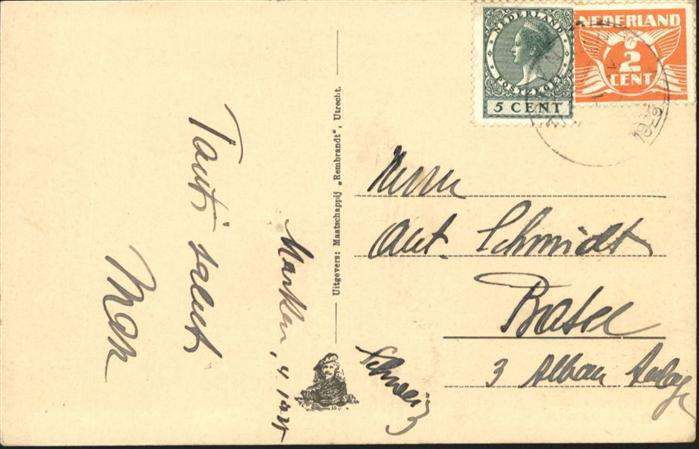 Tanti saluti
Max
Marken, 4
Uitgevers: Maatschappij „Rembrandt", Utrecht.
NEDERLAND
POSTZEGEL
5 CENT
NEDERLAND
2
CENT
Herrn
Ant. Schmidt
Basel
3 Alban Anlage
Schweiz